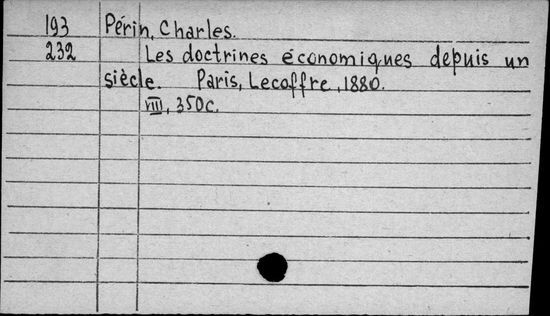 193 Périn, Charles.
232 Les doctrines économiques depuis un
siècle. Paris, Lecoffre, 1880.
VIII, 350c.